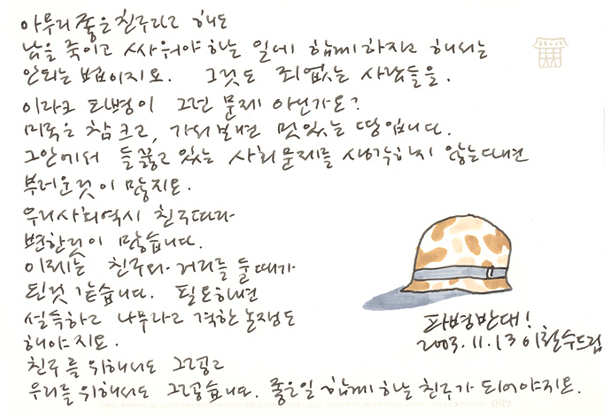 아무리 좋은 친구라고 해도
남을 죽이고 싸워야 하는 일에 함께하자고 해서는
안되는 법이지요. 그것도 죄없는 사람들을.
이라크 파병이 그런 문제 아닌가요?
미국은 참 크고, 가서보면 멋있는 땅입니다.
그안에서 들끓고 있는 사회문제를 생각하지 않는다면
부러운것이 많지요.
우리사회역시 친구따라
변한것이 많습니다.
이제는 친구와 거리를 둘때가
된것 같습니다. 필요하면
설득하고 나무라고 격한논쟁도
해야지요.
친구를 위해서도 그렇고
우리를 위해서도 그렇습니다. 좋은일 함께 하는 친구가 되어야지요.
파병반대!
2003.11.13 이철수드림